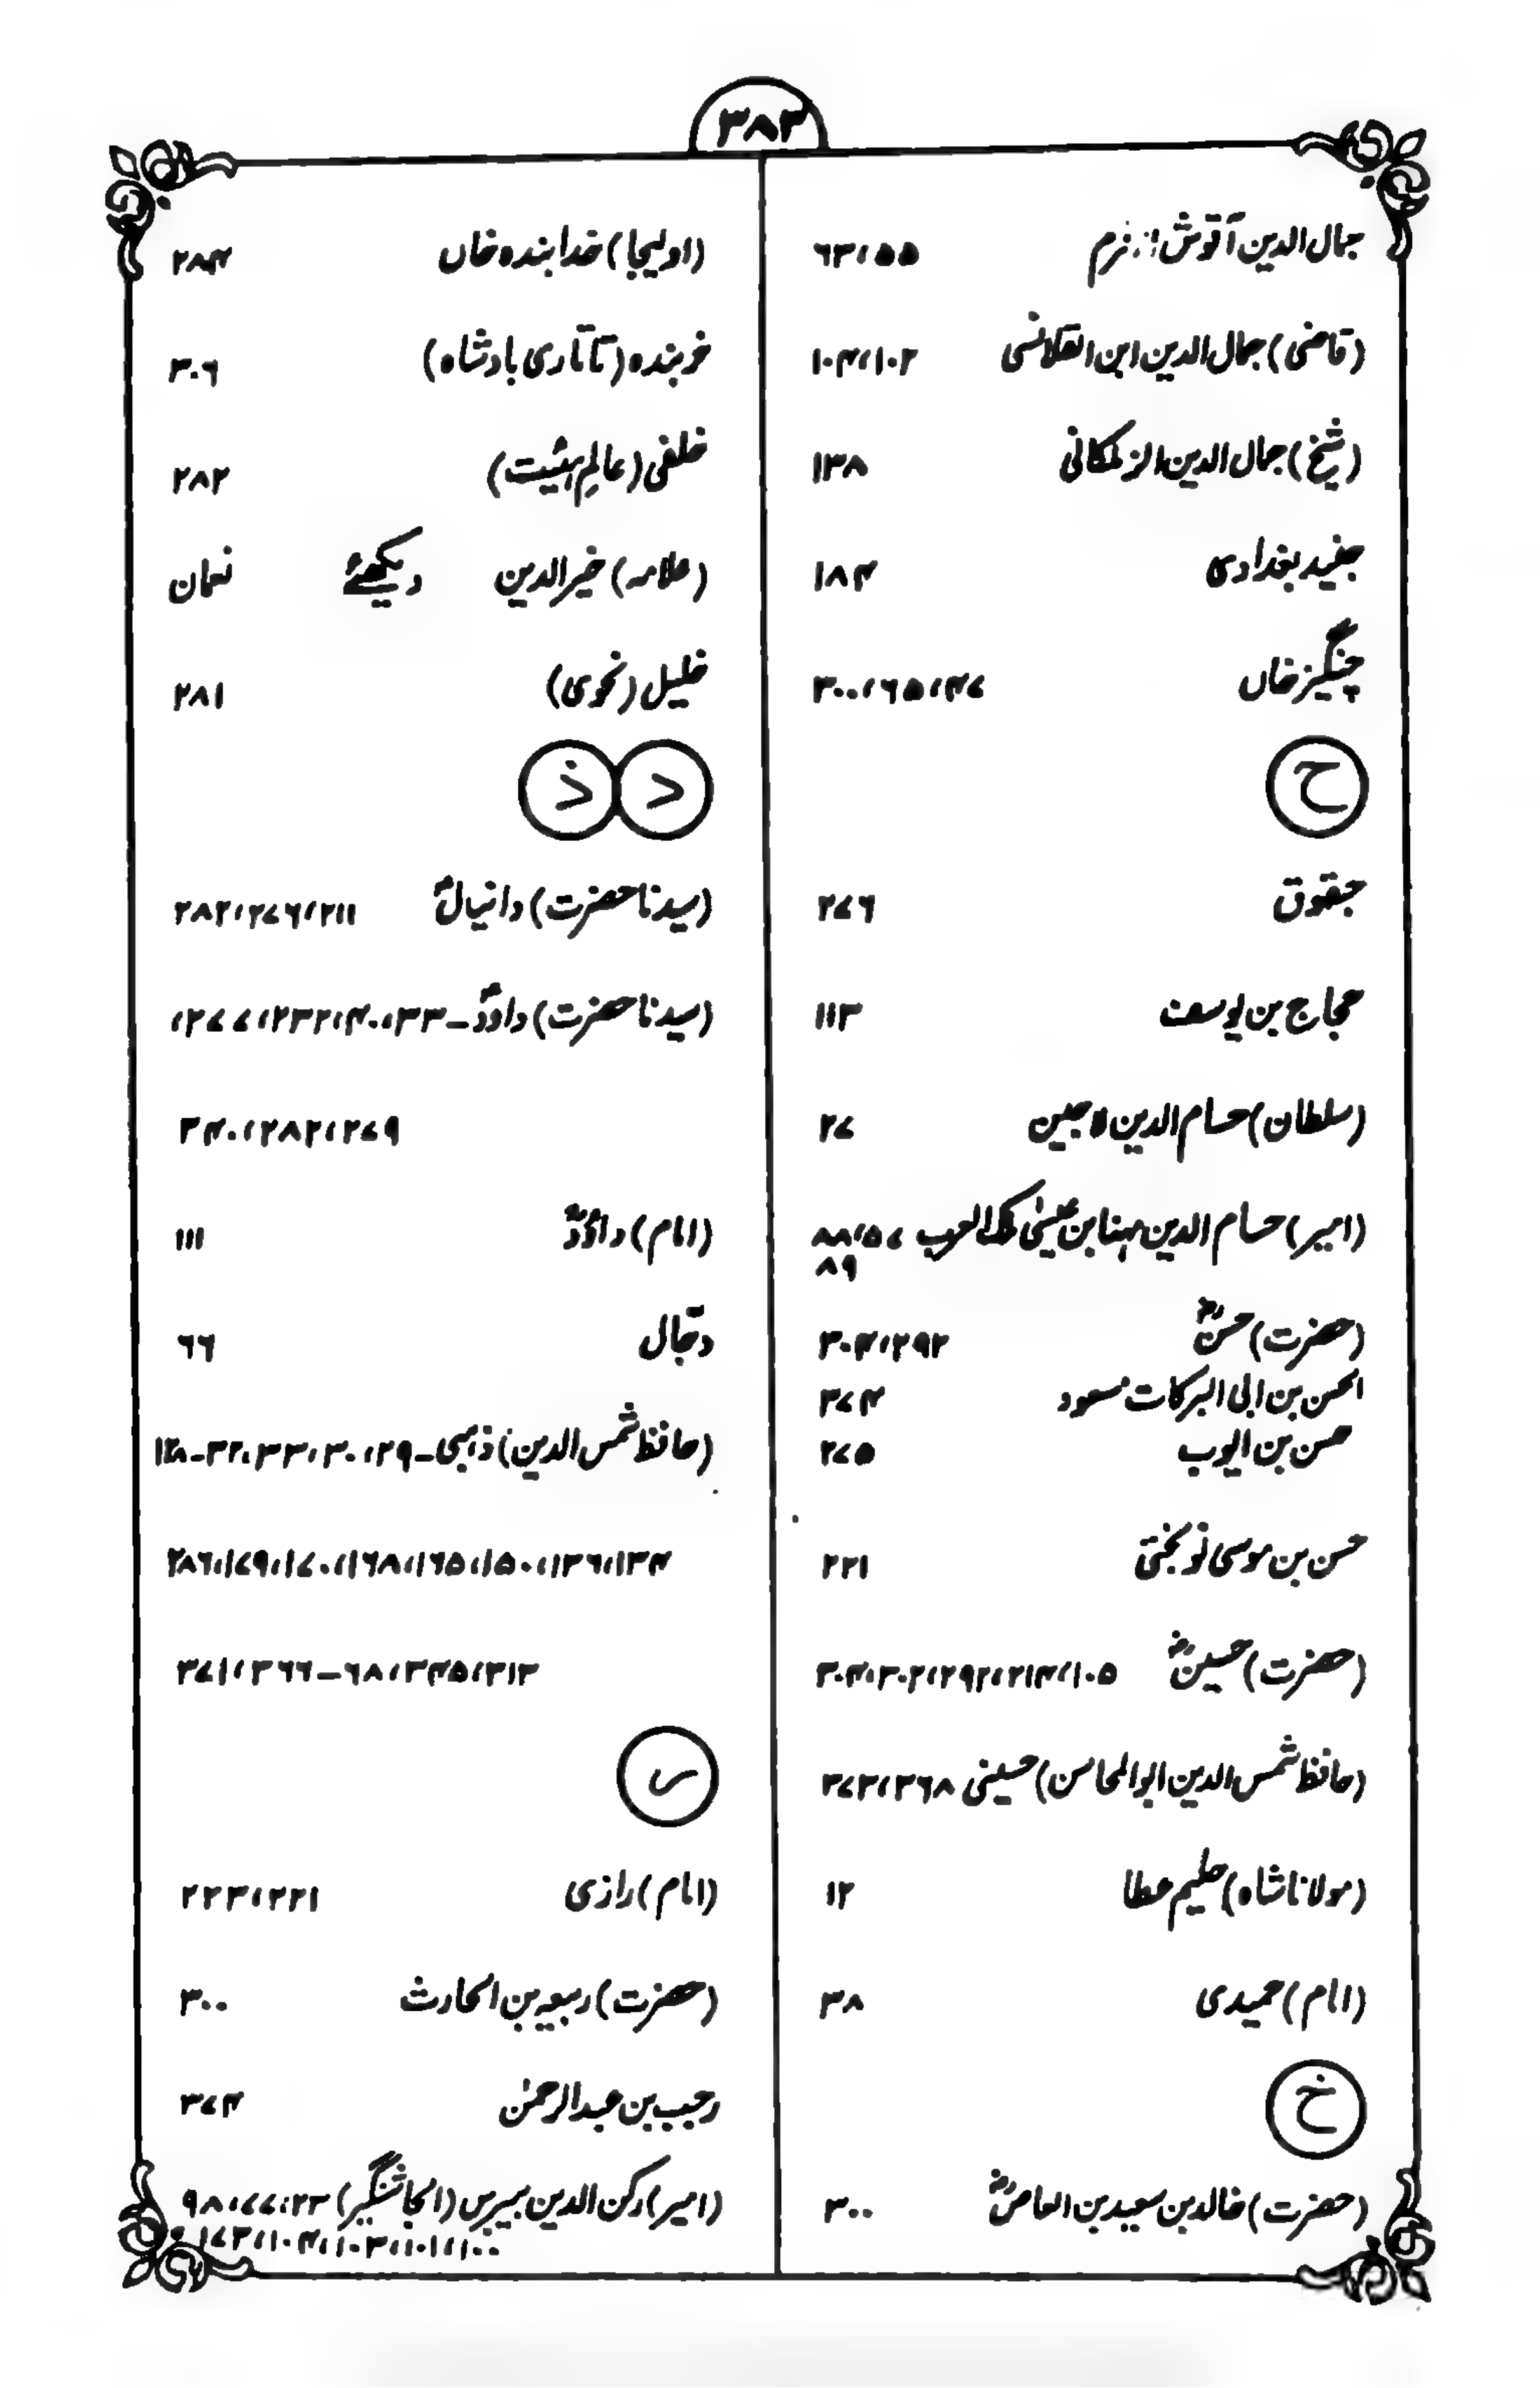 ۳۸۳
جمال الدین آقوش افرم ۵۵، ۶۳
(قاضی) جمال الدین ابن القلانسی ۱۰۲، ۱۰۴
(شیخ) جمال الدین الزملکانی ۱۳۸
جنید بغدادی ۱۸۴
چنگیز خاں ۴۷، ۶۵، ۳۰۰
ح
حبقوق ۲۷۶
حجاج بن یوسف ۱۱۳
(سلطان) حسام الدین لاجین ۲۷
(امیر) حسام الدین مہنا بن عیسیٰ ملک العرب ۵۷، ۸۸
۸۹
(حضرت) حسنؓ ۲۹۲، ۳۰۴
الحسن بن ابی البرکات مسعود ۳۷۴
حسن بن ایوب ۲۷۵
حسن بن موسی نوبختی ۲۲۱
(حضرت) حسینؓ ۱۰۵، ۲۱۴، ۲۹۲، ۳۰۲، ۳۰۴
(حافظ شمس الدین ابو المحاسن) حسینی ۳۶۸، ۳۷۳
(مولانا شاہ) حلیم عطا ۱۲
(امام) حمیدی ۳۸
خ
(حضرت) خالد بن سعید بن العاصؓ ۳۰۰
(اولیجا) خدا بندہ خاں ۲۸۴
خربندہ (تاتاری بادشاہ) ۳۰۶
خلفی (عالمِ ہیئت) ۲۸۲
(علامہ) خیر الدین دیکھئے نعمان
خلیل (نحوی) ۲۸۱
د ذ
(سیدنا حضرت) دانیالؑ ۲۱۱، ۲۷۶، ۲۸۲
(سیدنا حضرت) داؤدؑ ـ ۳۳، ۴۰، ۲۳۲، ۲۷۷،
۲۷۹، ۲۸۲، ۳۴۰
(امام) داؤدؒ ۱۱۱
دجّال ۶۶
(حافظ شمس الدین) ذہبی ـ ۲۹، ۳۰، ۳۳، ۳۲ ـ
۱۳۴، ۱۳۶، ۱۵۰، ۱۶۵، ۱۶۸، ۱۷۰، ۱۷۹، ۲۸۶
۳۱۳، ۳۴۵، ۶۸ ـ ۳۶۶، ۳۷۱
ر
(امام) رازی ۲۲۱، ۲۲۳
(حضرت) ربیعہ بن الحارث ۳۰۰
رجب بن عبد الرحمٰن ۳۷۴
(امیر) رکن الدین بیبرس (الجاشنگیر) ۲۳، ۷۷، ۹۸
۱۰۰، ۱۰۱، ۱۰۳، ۱۰۴، ۱۷۳